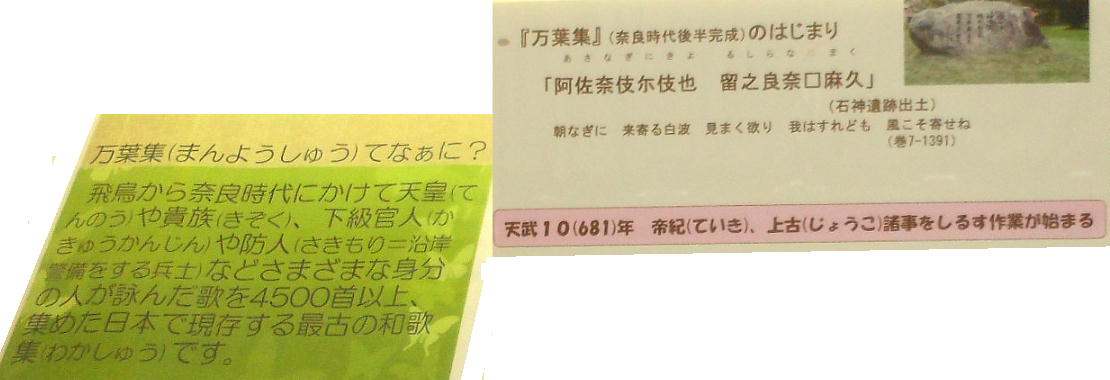 万葉集(まんようしゅう)てなぁに?
飛鳥から奈良時代にかけて天皇(て
んのう)や貴族(きぞく)、下級官人(か
きゅうかんじん)や防人(さきもり=沿岸
警備をする兵士)などさまざまな身分
の人が詠んだ歌を4500首以上、
集めた日本で現存する最古の和歌
集(わかしゅう)です。
『万葉集』(奈良時代後半完成)のはじまり
あさなぎにきよ るしらなにまく
「阿佐奈伎尓伎也 留之良奈□麻久」
(石神遺跡出土)
朝なぎに 来寄る白波 見まく欲り 我はすれども 風こそ寄せね
(巻7-1391)
天武10(681)年 帝紀(ていき)、上古(じょうこ)諸事をしるす作業が始まる